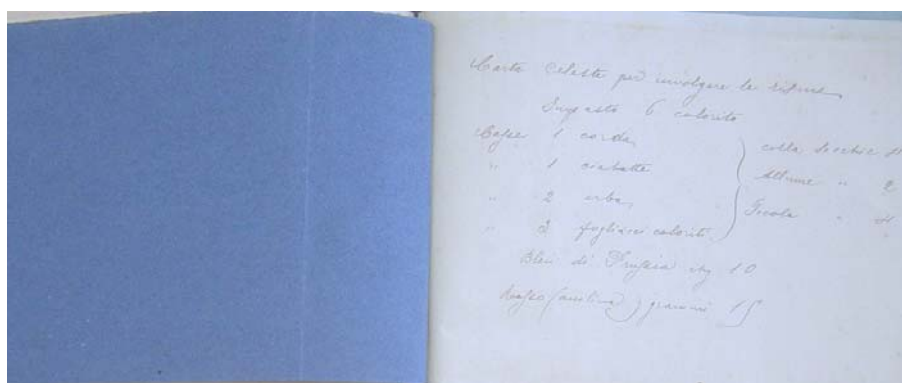 Carta Celeste per involgere le risme
Impasto 6 colorito
Casse 1 corda
" 1 ciabatte
" 2 erba
" 2 fogliacci coloriti
colla secchie 4
Allume " 2
Fecola " 4
Bleu di Prussia Kg 10
Rosso (anilina) grammi 15